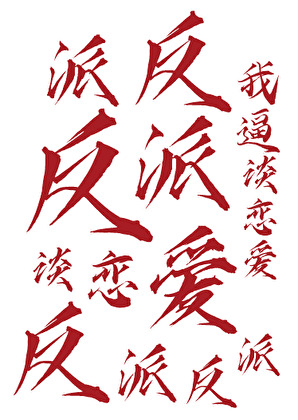 派反
反派
谈恋爱
反派反派
我逼谈恋爱